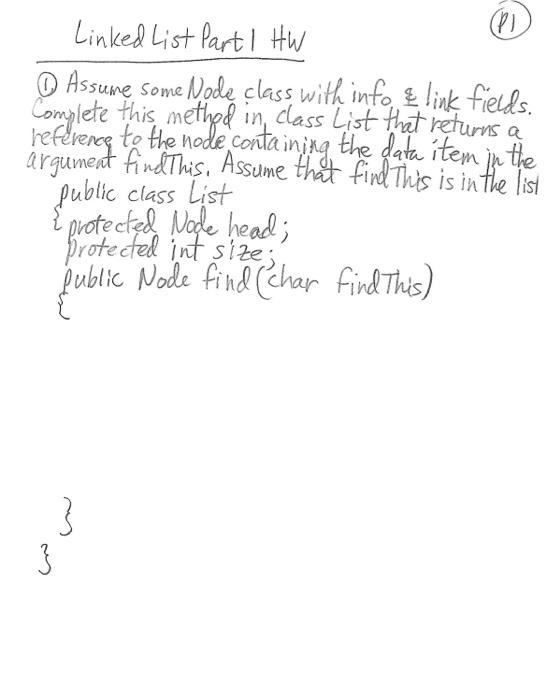 P1
Linked List Part 1 HW
① Assume some Node class with info & link fields.
Complete this method in class List that returns a
reference to the node containing the data item in the
argument findThis. Assume that findThis is in the list
public class List
{ protected Node head;
protected int size;
public Node find(char findThis)
{
}
}